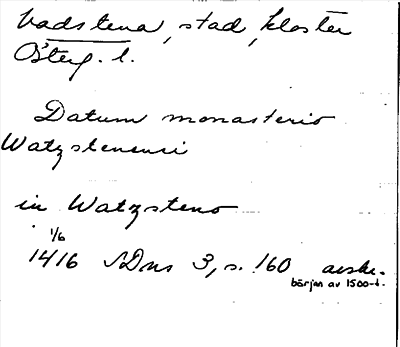 Vadstena, stad, kloster
Österg. l.
Datum monasterio
Watzstenensi
in Watzsteno
1/6
1416 SDns 3, s. 160 avskr.
början av 1500-t.